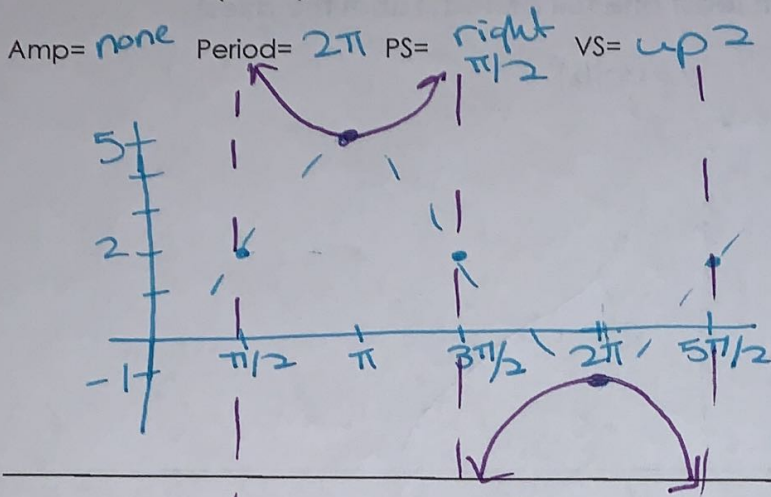 Amp= none Period= 2π PS= right π/2 VS= up 2
5
2
π/2 π 3π/2 2π 5π/2
-1